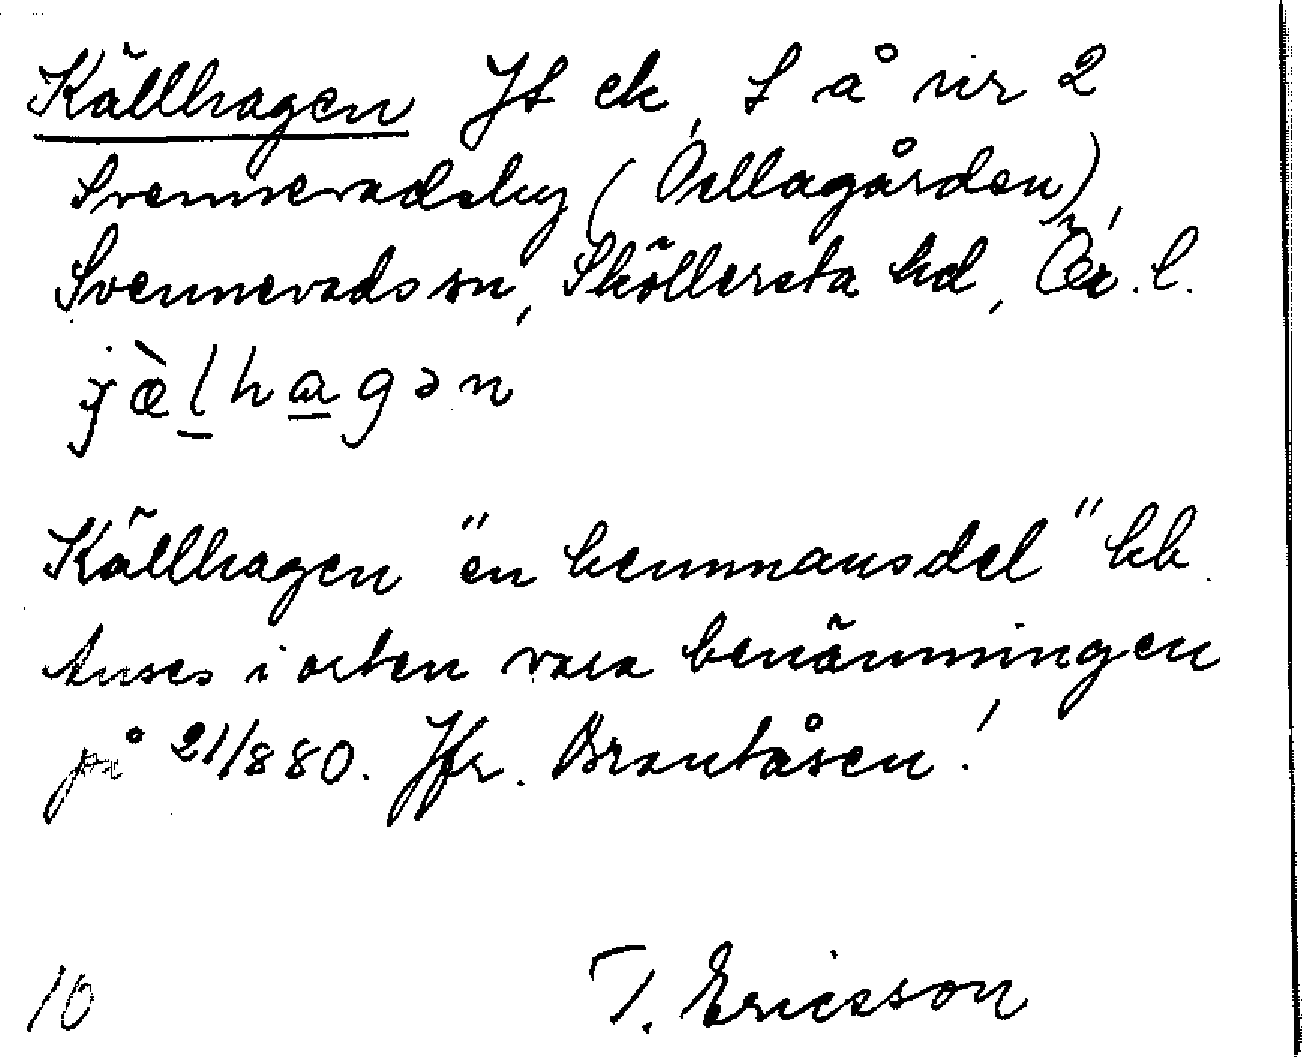 Källhagen Jf ek, S å nr 2
Svennevadsby (Pellagården),
Svennevads sn, Sköllersta hd, Ör. l.
jæ̀lhagən
Källhagen "en hemmansdel" kb
Anses i orten vara benämningen
på 21/880. Jfr. Brantåsen!
10 T. Ericsson